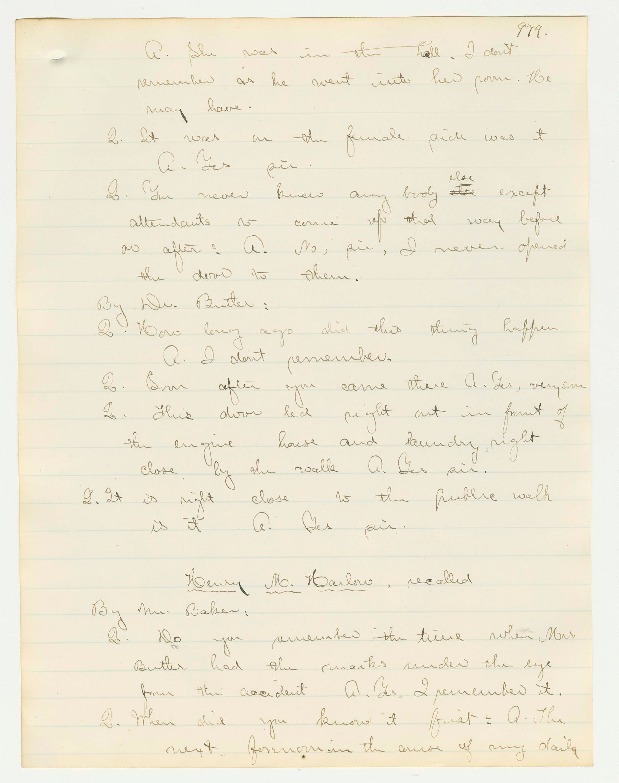 979.
A. She was in the hall. I don't
remember as he went into her room. He
may have.
Q. It was on the female side was it
A. Yes sir.
Q. You never knew any body else except
attendants to come up that way before
or after: A. No, sir, I never opened
the door to them.
By Dr. Butler:
Q. How long ago did this thing happen
A. I don't remember.
Q. Soon after you came there A. Yes, very soon
Q. This door led right out in front of
the engine house and laundry, right
close by the walk A. Yes sir.
Q. It is right close to the public walk
is it A. Yes sir.
Henry M. Harlow, recalled
By Mr. Baker:
Q. Do you remember the time when Mrs
Butler had the marks under the eye
from the accident A. Yes. I remember it.
Q. When did you know it first: A. The
next forenoon in the course of my daily